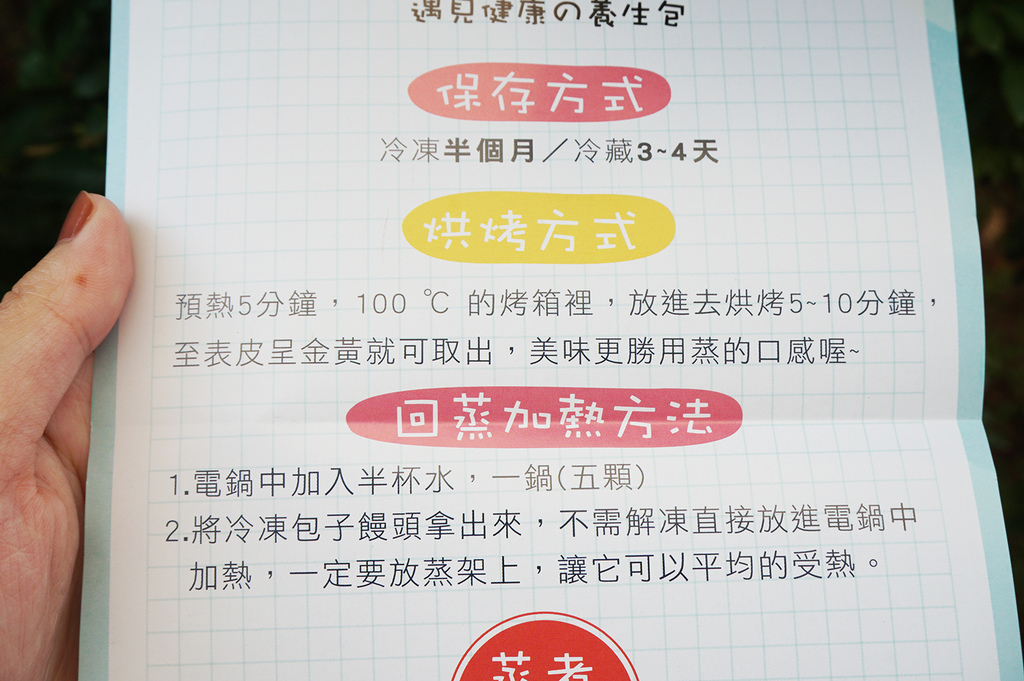 遇見健康の養生包
保存方式
冷凍半個月／冷藏3~4天
烘烤方式
預熱5分鐘，100 ℃ 的烤箱裡，放進去烘烤5~10分鐘，
至表皮呈金黃就可取出，美味更勝用蒸的口感喔~
回蒸加熱方法
1.電鍋中加入半杯水，一鍋(五顆)
2.將冷凍包子饅頭拿出來，不需解凍直接放進電鍋中
加熱，一定要放蒸架上，讓它可以平均的受熱。
蒸煮